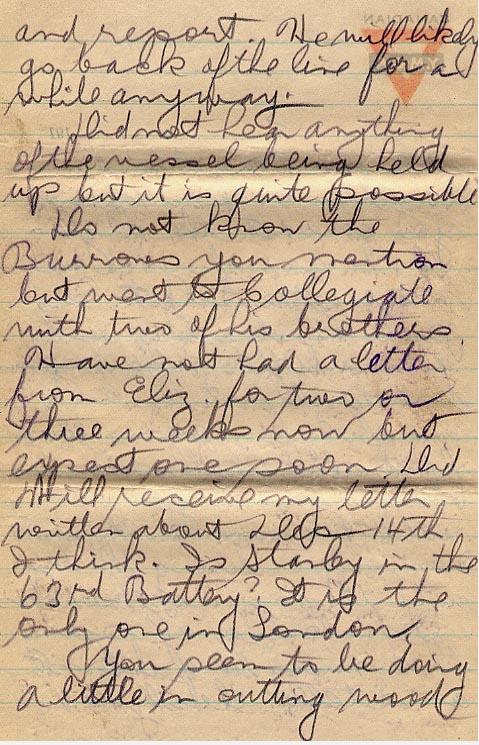 and report. He will likely
go back of the line for a
while anyway.
Did not hear anything
of the vessel being held
up but it is quite possible
Do not know the
Burrows you mention
but went to Collegiate
with two of his brothers.
Have not had a letter
from Eliz. for two or
three weeks now but
expect one soon. Did
Will receive my letter
written about Dec 14th
I think. Is Stanley in the
63rd Battery? It is the
only one in London.
You seem to be doing
a little in cutting wood